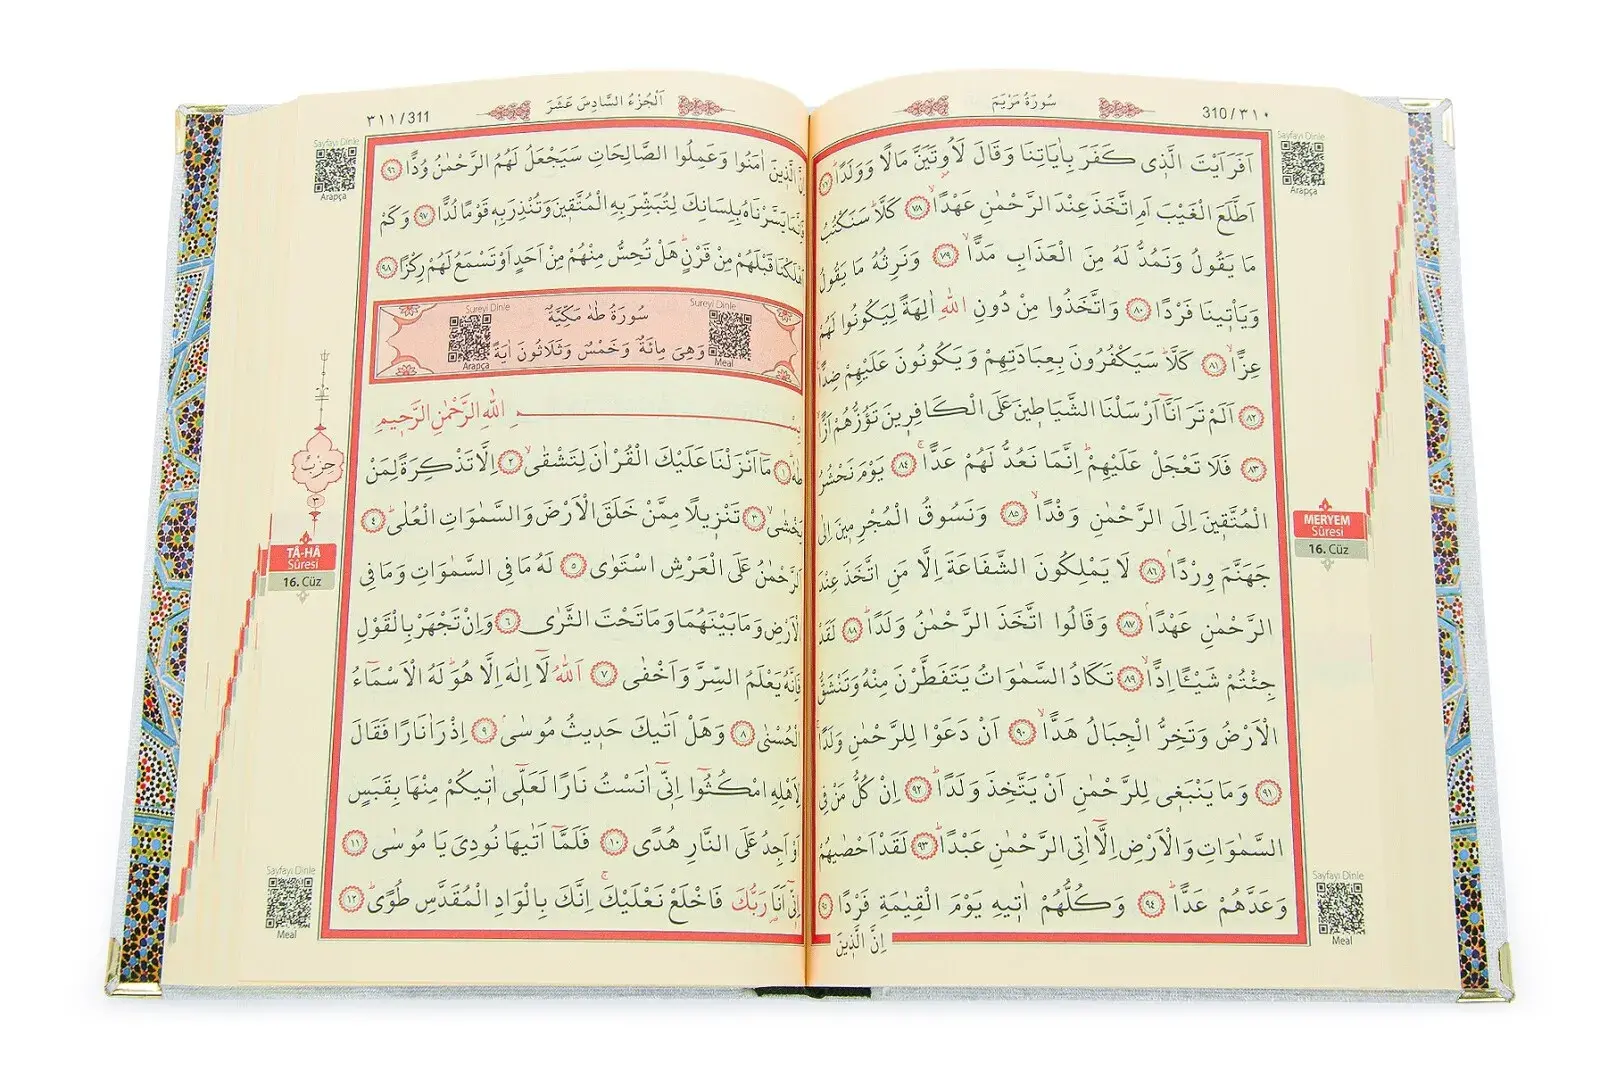 310/٣١٠
سُورَةُ مَرْيَمَ
Sayfayı Dinle
Arapça
اَفَرَاَيْتَ الَّذ۪ي كَفَرَ بِاٰيَاتِنَا وَقَالَ لَاُو۫تَيَنَّ مَالًا وَوَلَدًاۜ ﴿٧٧﴾
اَطَّلَعَ الْغَيْبَ اَمِ اتَّخَذَ عِنْدَ الرَّحْمٰنِ عَهْدًاۙ ﴿٧٨﴾ كَلَّاۜ سَنَكْتُبُ
مَا يَقُولُ وَنَمُدُّ لَهُ مِنَ الْعَذَابِ مَدًّاۙ ﴿٧٩﴾ وَنَرِثُهُ مَا يَقُولُ
وَيَأْت۪ينَا فَرْدًا ﴿٨٠﴾ وَاتَّخَذُوا مِنْ دُونِ اللّٰهِ اٰلِهَةً لِيَكُونُوا لَهُمْ
عِزًّاۙ ﴿٨١﴾ كَلَّاۜ سَيَكْفُرُونَ بِعِبَادَتِهِمْ وَيَكُونُونَ عَلَيْهِمْ ضِدًّا
﴿٨٢﴾ اَلَمْ تَرَ اَنَّٓا اَرْسَلْنَا الشَّيَاط۪ينَ عَلَى الْكَافِر۪ينَ تَؤُزُّهُمْ اَزًّاۙ
﴿٨٣﴾ فَلَا تَعْجَلْ عَلَيْهِمْۜ اِنَّمَا نَعُدُّ لَهُمْ عَدًّاۚ ﴿٨٤﴾ يَوْمَ نَحْشُرُ
الْمُتَّق۪ينَ اِلَى الرَّحْمٰنِ وَفْدًاۙ ﴿٨٥﴾ وَنَسُوقُ الْمُجْرِم۪ينَ اِلٰى
جَهَنَّمَ وِرْدًاۢ ﴿٨٦﴾ لَا يَمْلِكُونَ الشَّفَاعَةَ اِلَّا مَنِ اتَّخَذَ عِنْدَ
الرَّحْمٰنِ عَهْدًاۢ ﴿٨٧﴾ وَقَالُوا اتَّخَذَ الرَّحْمٰنُ وَلَدًاۜ ﴿٨٨﴾ لَقَدْ
جِئْتُمْ شَيْـًٔا اِدًّاۙ ﴿٨٩﴾ تَكَادُ السَّمٰوَاتُ يَتَفَطَّرْنَ مِنْهُ وَتَنْشَقُّ
الْاَرْضُ وَتَخِرُّ الْجِبَالُ هَدًّاۙ ﴿٩٠﴾ اَنْ دَعَوْا لِلرَّحْمٰنِ وَلَدًاۚ
﴿٩١﴾ وَمَا يَنْبَغ۪ي لِلرَّحْمٰنِ اَنْ يَتَّخِذَ وَلَدًاۜ ﴿٩٢﴾ اِنْ كُلُّ مَنْ فِي
السَّمٰوَاتِ وَالْاَرْضِ اِلَّٓا اٰتِي الرَّحْمٰنِ عَبْدًاۜ ﴿٩٣﴾ لَقَدْ اَحْصٰيهُمْ
وَعَدَّهُمْ عَدًّاۜ ﴿٩٤﴾ وَكُلُّهُمْ اٰت۪يهِ يَوْمَ الْقِيٰمَةِ فَرْدًا ﴿٩٥﴾
اِنَّ الَّذ۪ينَ
MERYEM
Sûresi
16. Cüz
Sayfayı Dinle
Meal
٣١١/311
اَلْجُزْءُ السَّادِسَ عَشَرَ
Sayfayı Dinle
Arapça
اِنَّ الَّذ۪ينَ اٰمَنُوا وَعَمِلُوا الصَّالِحَاتِ سَيَجْعَلُ لَهُمُ الرَّحْمٰنُ وُدًّا ﴿٩٦﴾
فَاِنَّمَا يَسَّرْنَاهُ بِلِسَانِكَ لِتُبَشِّرَ بِهِ الْمُتَّق۪ينَ وَتُنْذِرَ بِه۪ قَوْمًا لُدًّا ﴿٩٧﴾ وَكَمْ
اَهْلَكْنَا قَبْلَهُمْ مِنْ قَرْنٍۜ هَلْ تُحِسُّ مِنْهُمْ مِنْ اَحَدٍ اَوْ تَسْمَعُ لَهُمْ رِكْزًا ﴿٩٨﴾
Sureyi Dinle
Arapça
سُورَةُ طٰهٰ مَكِّيَّةٌ
وَهِيَ مِائَةٌ وَخَمْسٌ وَثَلَاثُونَ اٰيَةً
Sureyi Dinle
Meal
بِسْمِ اللّٰهِ الرَّحْمٰنِ الرَّح۪يمِ
طٰهٰۜ ﴿١﴾ مَٓا اَنْزَلْنَا عَلَيْكَ الْقُرْاٰنَ لِتَشْقٰىۙ ﴿٢﴾ اِلَّا تَذْكِرَةً لِمَنْ
يَخْشٰىۙ ﴿٣﴾ تَنْز۪يلًا مِمَّنْ خَلَقَ الْاَرْضَ وَالسَّمٰوَاتِ الْعُلٰىۜ ﴿٤﴾
اَلرَّحْمٰنُ عَلَى الْعَرْشِ اسْتَوٰى ﴿٥﴾ لَهُ مَا فِي السَّمٰوَاتِ وَمَا فِي
الْاَرْضِ وَمَا بَيْنَهُمَا وَمَا تَحْتَ الثَّرٰى ﴿٦﴾ وَاِنْ تَجْهَرْ بِالْقَوْلِ
فَاِنَّهُ يَعْلَمُ السِّرَّ وَاَخْفٰى ﴿٧﴾ اَللّٰهُ لَٓا اِلٰهَ اِلَّا هُوَۜ لَهُ الْاَسْمَٓاءُ
الْحُسْنٰى ﴿٨﴾ وَهَلْ اَتٰيكَ حَد۪يثُ مُوسٰىۢ ﴿٩﴾ اِذْ رَاٰ نَارًا فَقَالَ
لِاَهْلِهِ امْكُثُٓوا اِنّ۪ٓي اٰنَسْتُ نَارًا لَعَلّ۪ٓي اٰت۪يكُمْ مِنْهَا بِقَبَسٍ
اَوْ اَجِدُ عَلَى النَّارِ هُدًى ﴿١٠﴾ فَلَمَّٓا اَتٰيهَا نُودِيَ يَا مُوسٰى ﴿١١﴾
اِنّ۪ٓي اَنَا۬ رَبُّكَ فَاخْلَعْ نَعْلَيْكَۚ اِنَّكَ بِالْوَادِ الْمُقَدَّسِ طُوًىۜ ﴿١٢﴾
حِزْبٌ
٣
TÂ-HÂ
Sûresi
16. Cüz
Sayfayı Dinle
Meal